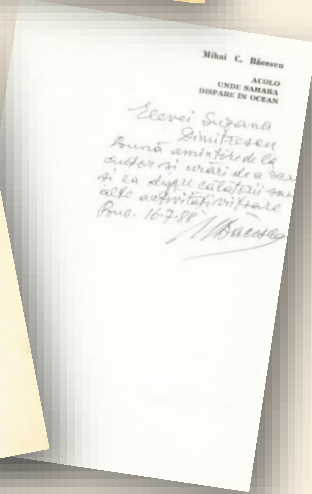 Mihai C. Băcescu
ACOLO
UNDE SAHARA
DISPARE ÎN OCEAN
Elevei Suzana
Dimitrescu
Bună amintire de la
autor și urări de a
și ea despre călătorii sau
alte activități viitoare
16.7.88
M Băcescu